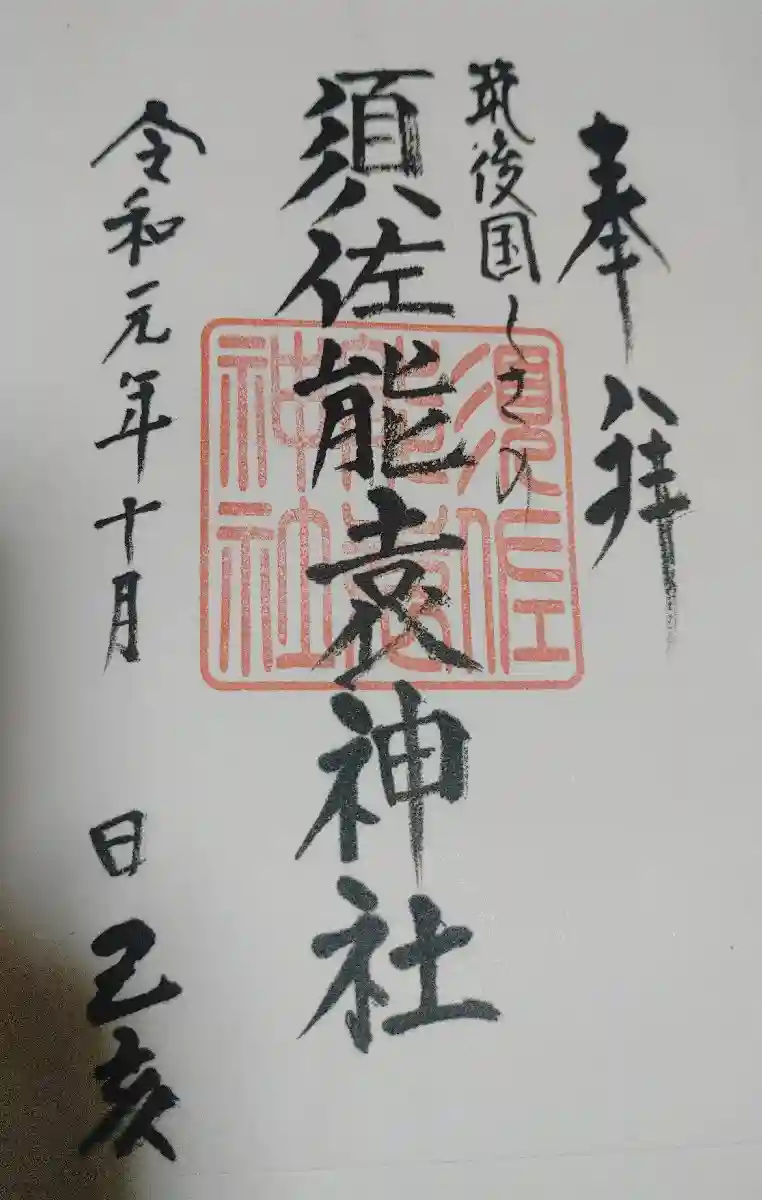 奉拝
筑後国くさの
須佐能袁神社
須佐能袁神社
令和元年十月 日 己亥